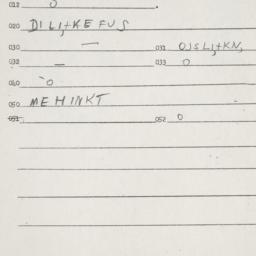 012 0
020 DILI,+KEFUS
030 — 031 OJSLI,+KN,
032 — 033 0
040 0
050 MEHINKT
051 052 0